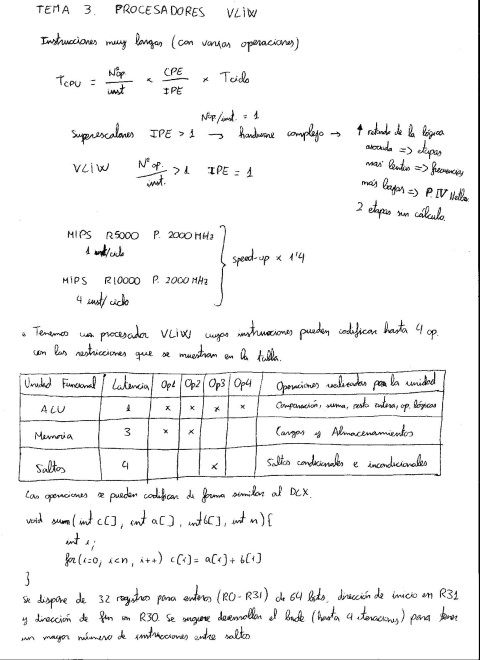 TEMA 3. PROCESADORES VLIW
Instrucciones muy largas (con varias operaciones)
TCPU = Nºop/inst × CPE/IPE × Tciclo
Nºop/inst. = 1
Superescalares IPE > 1 → hardware complejo → ↑ retardo de la lógica
asociada => etapas
más lentas => frecuencias
más bajas => P. IV
2 etapas sin cálculo.
VLIW Nº op./inst. > 1 IPE = 1
MIPS R5000 P. 2000 MHz
1 inst/ciclo
speed-up × 1'4
MIPS R10000 P. 2000 MHz
4 inst/ciclo
Tenemos un procesador VLIW cuyas instrucciones pueden codificar hasta 4 op.
con las restricciones que se muestran en la tabla.
Unidad Funcional Latencia Op1 Op2 Op3 Op4 Operaciones realizadas por la unidad
ALU 1 x x x x Comparación, suma, resta entera, op. lógicas
Memoria 3 x x Cargas y Almacenamientos
Saltos 4 x Saltos condicionales e incondicionales
Las operaciones se pueden codificar de forma similar al DLX.
void sum(int c[], int a[], int b[], int n){
int i;
for(i=0, i<n, i++) c[i] = a[i] + b[i]
}
Se dispone de 32 registros para enteros (R0-R31) de 64 bits, dirección de inicio en R31
y dirección de fin en R30. Se sugiere desenrollar el bucle (hasta 4 iteraciones) para tener
un mayor número de instrucciones entre saltos